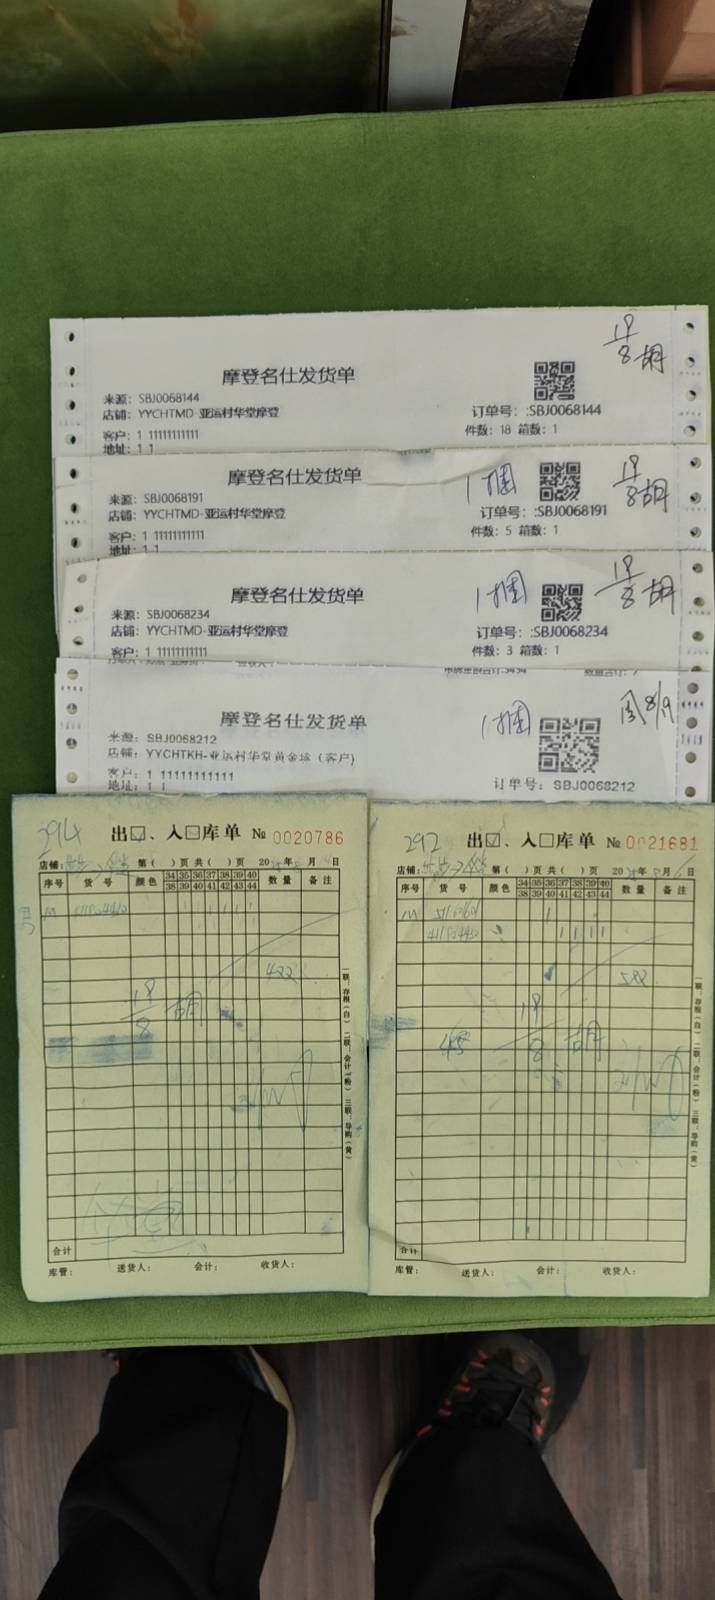 19/8 胡
摩登名仕发货单
来源: SBJ0068144
店铺: YYCHTMD-亚运村华堂摩登
订单号: :SBJ0068144
客户: 1 11111111111
件数: 18 箱数: 1
地址: 1 1
摩登名仕发货单
1捆
19/8 胡
来源: SBJ0068191
店铺: YYCHTMD-亚运村华堂摩登
订单号: :SBJ0068191
客户: 1 11111111111
件数: 5 箱数: 1
地址: 1 1
摩登名仕发货单
1捆
19/8 胡
来源: SBJ0068234
店铺: YYCHTMD-亚运村华堂摩登
订单号: :SBJ0068234
客户: 1 11111111111
件数: 3 箱数: 1
摩登名仕发货单
1捆
周8/19
来源: SBJ0068212
店铺: YYCHTKH-亚运村华堂黄金珍(客户)
客户: 1 11111111111
地址: 1 1
订单号: SBJ0068212
294
出☑、入□库单 № 0020786
店铺: 第( )页 共( )页 20 年 月 日
序号 货号 颜色 34 35 36 37 38 39 40 数量 备注
38 39 40 41 42 43 44
422
19/8 胡
华堂
合计
库管: 送货人: 会计: 收货人:
一联:存根(白) 二联:会计(粉) 三联:导购(黄)
292
出☑、入□库单 № 0021681
店铺: 第( )页 共( )页 20 年 月 日
序号 货号 颜色 34 35 36 37 38 39 40 数量 备注
38 39 40 41 42 43 44
582
19/8 胡
合计
库管: 送货人: 会计: 收货人:
一联:存根(白) 二联:会计(粉) 三联:导购(黄)